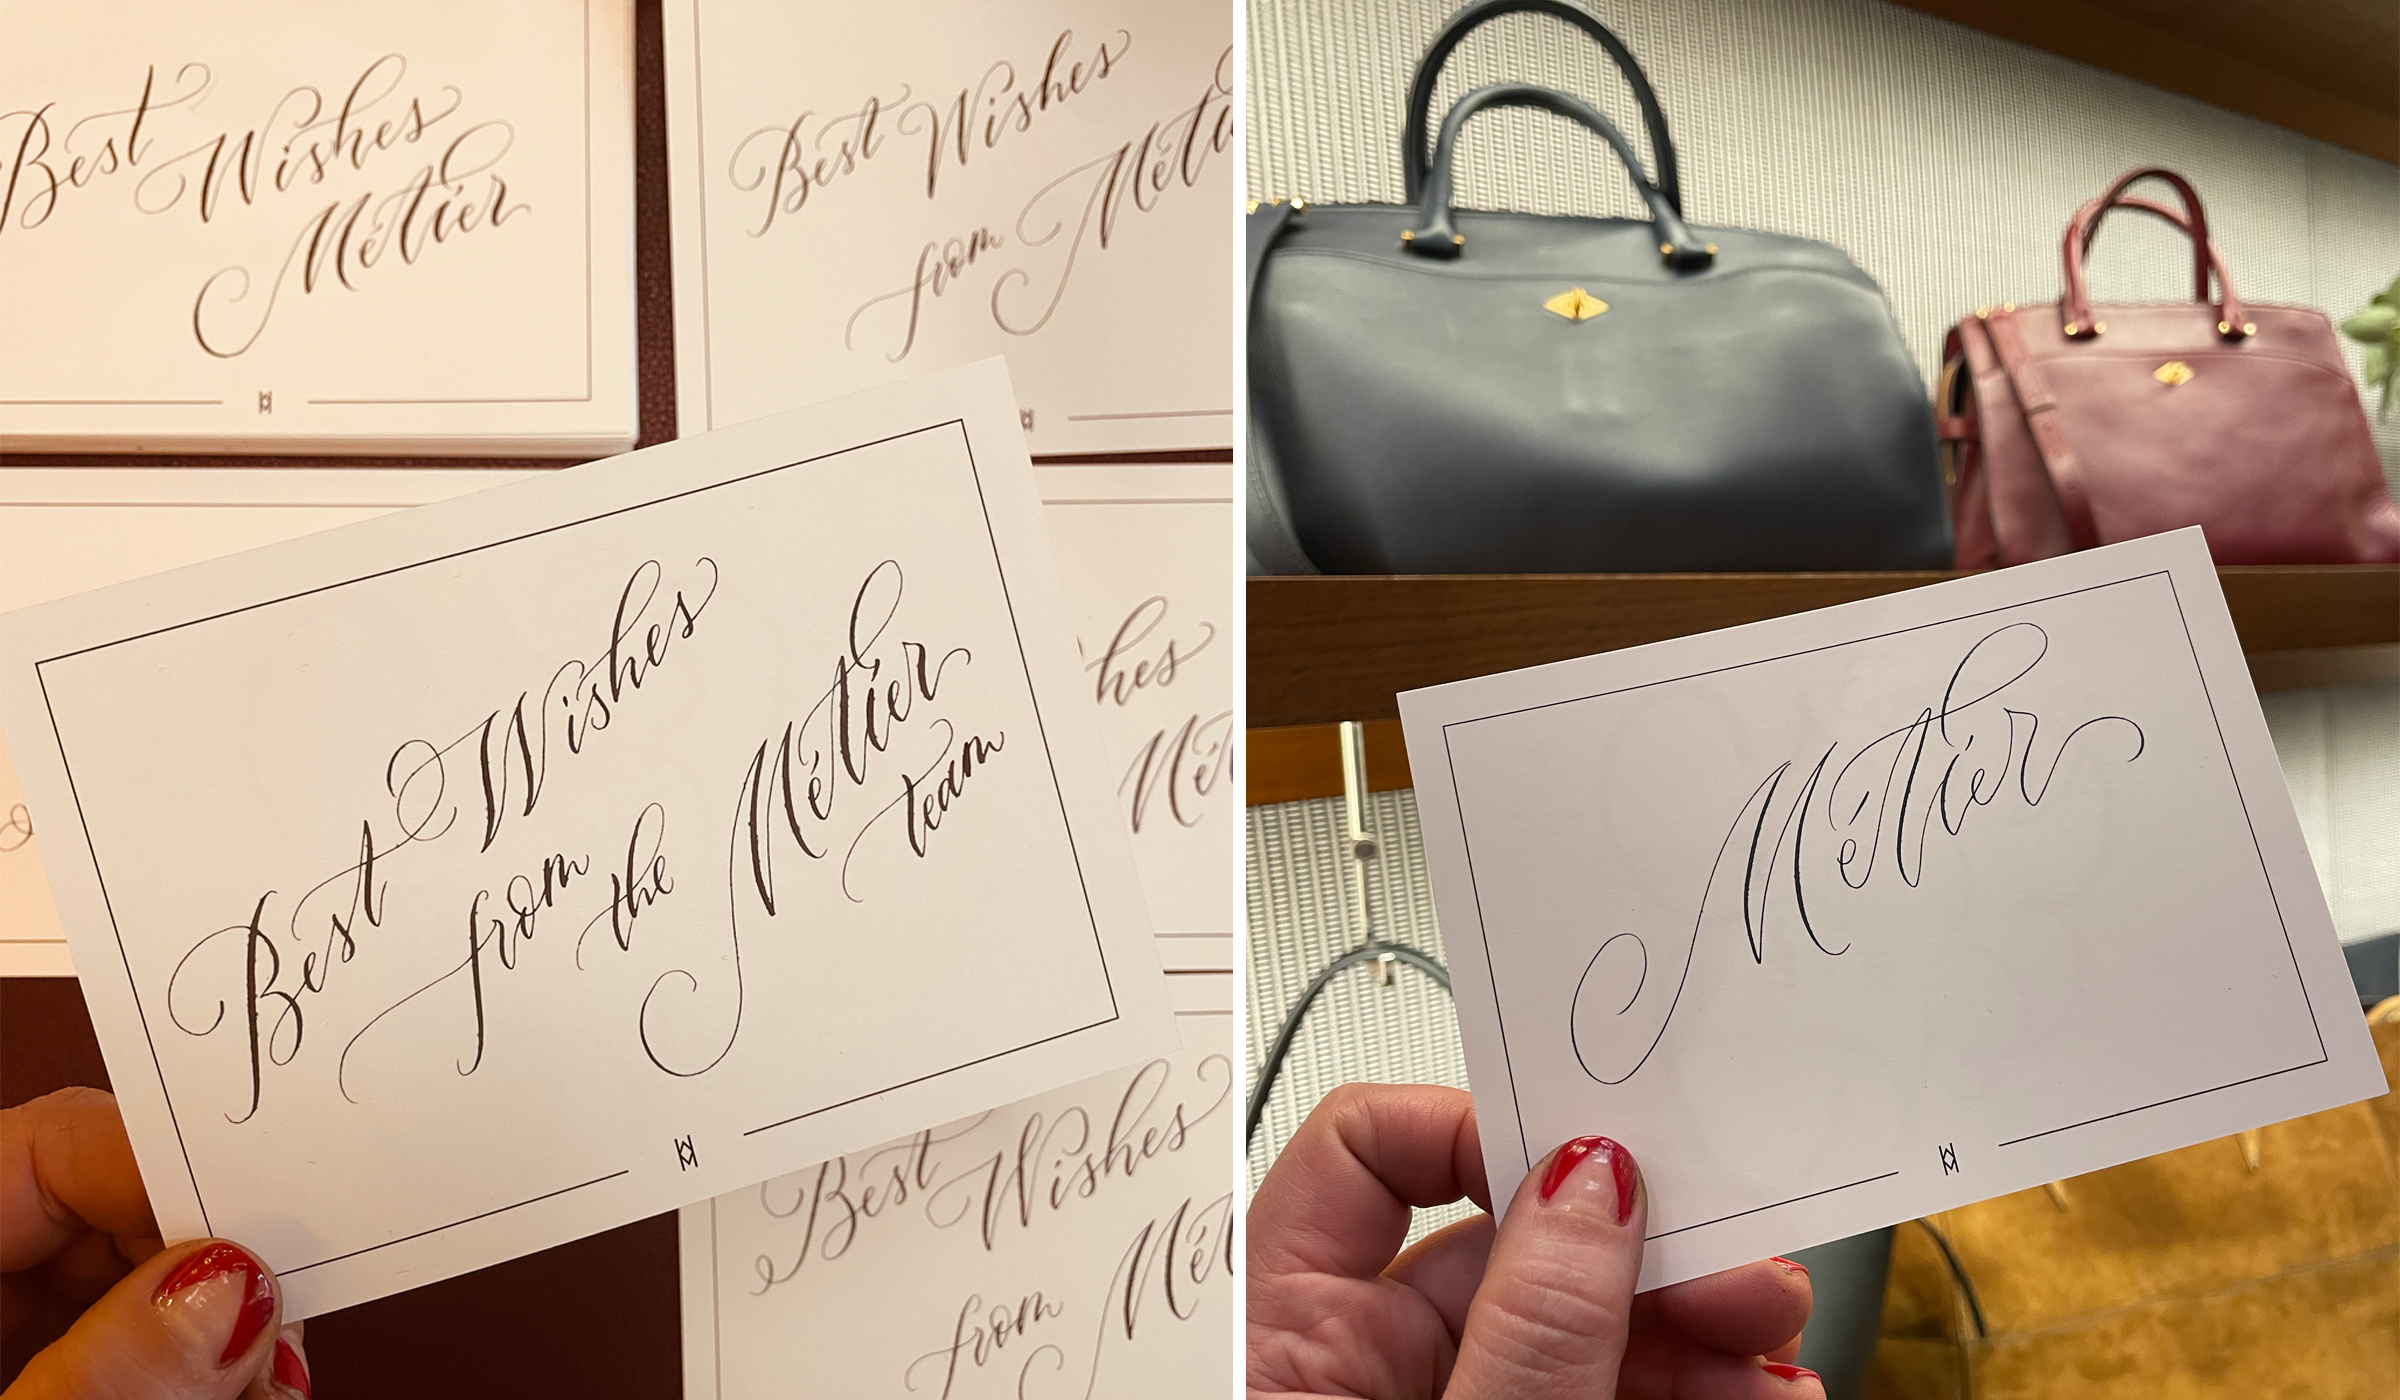 Best Wishes
Métier
Best Wishes
from Méti
Best Wishes
from the Métier
team
hes
Mét
Best Wishes
from Mét
Métier